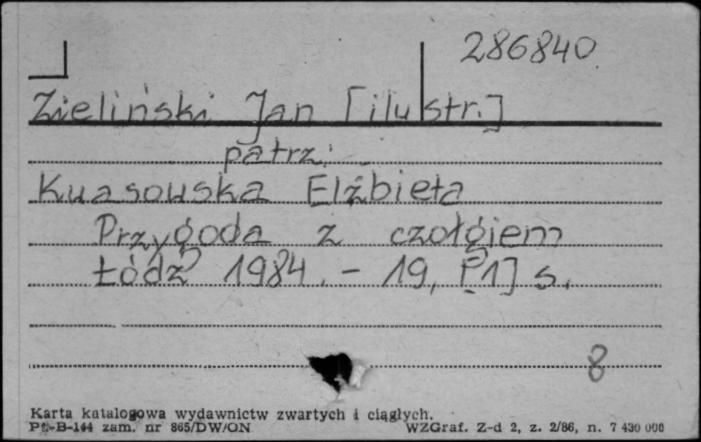 286840
Zieliński Jan [ilustr.]
patrz:
Kwasowska Elżbieta
Przygoda z czołgiem
Łódź 1984. - 19, [1] s.
8
Karta katalogowa wydawnictw zwartych i ciągłych.
Pu-B-144 zam. nr 865/DW/ON WZGraf. Z-d 2, z. 2/86, n. 7 430 000